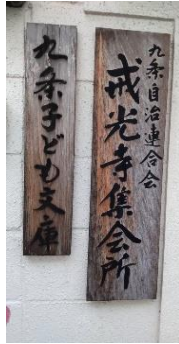 九条自治連合会
戒光寺集会所
九条子ども文庫